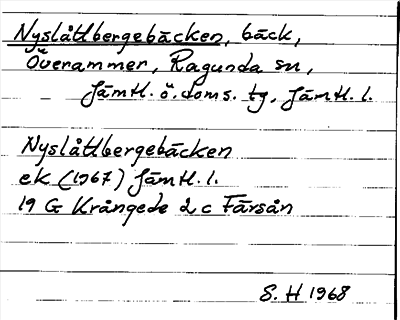 Nyslåttbergebäcken, bäck,
Överammer, Ragunda sn,
Jämtl. ö. doms. tg, Jämtl. l.
Nyslåttbergebäcken
ek (1967) Jämtl. l.
19 G Krångede 2 c Färsån
S. H 1968